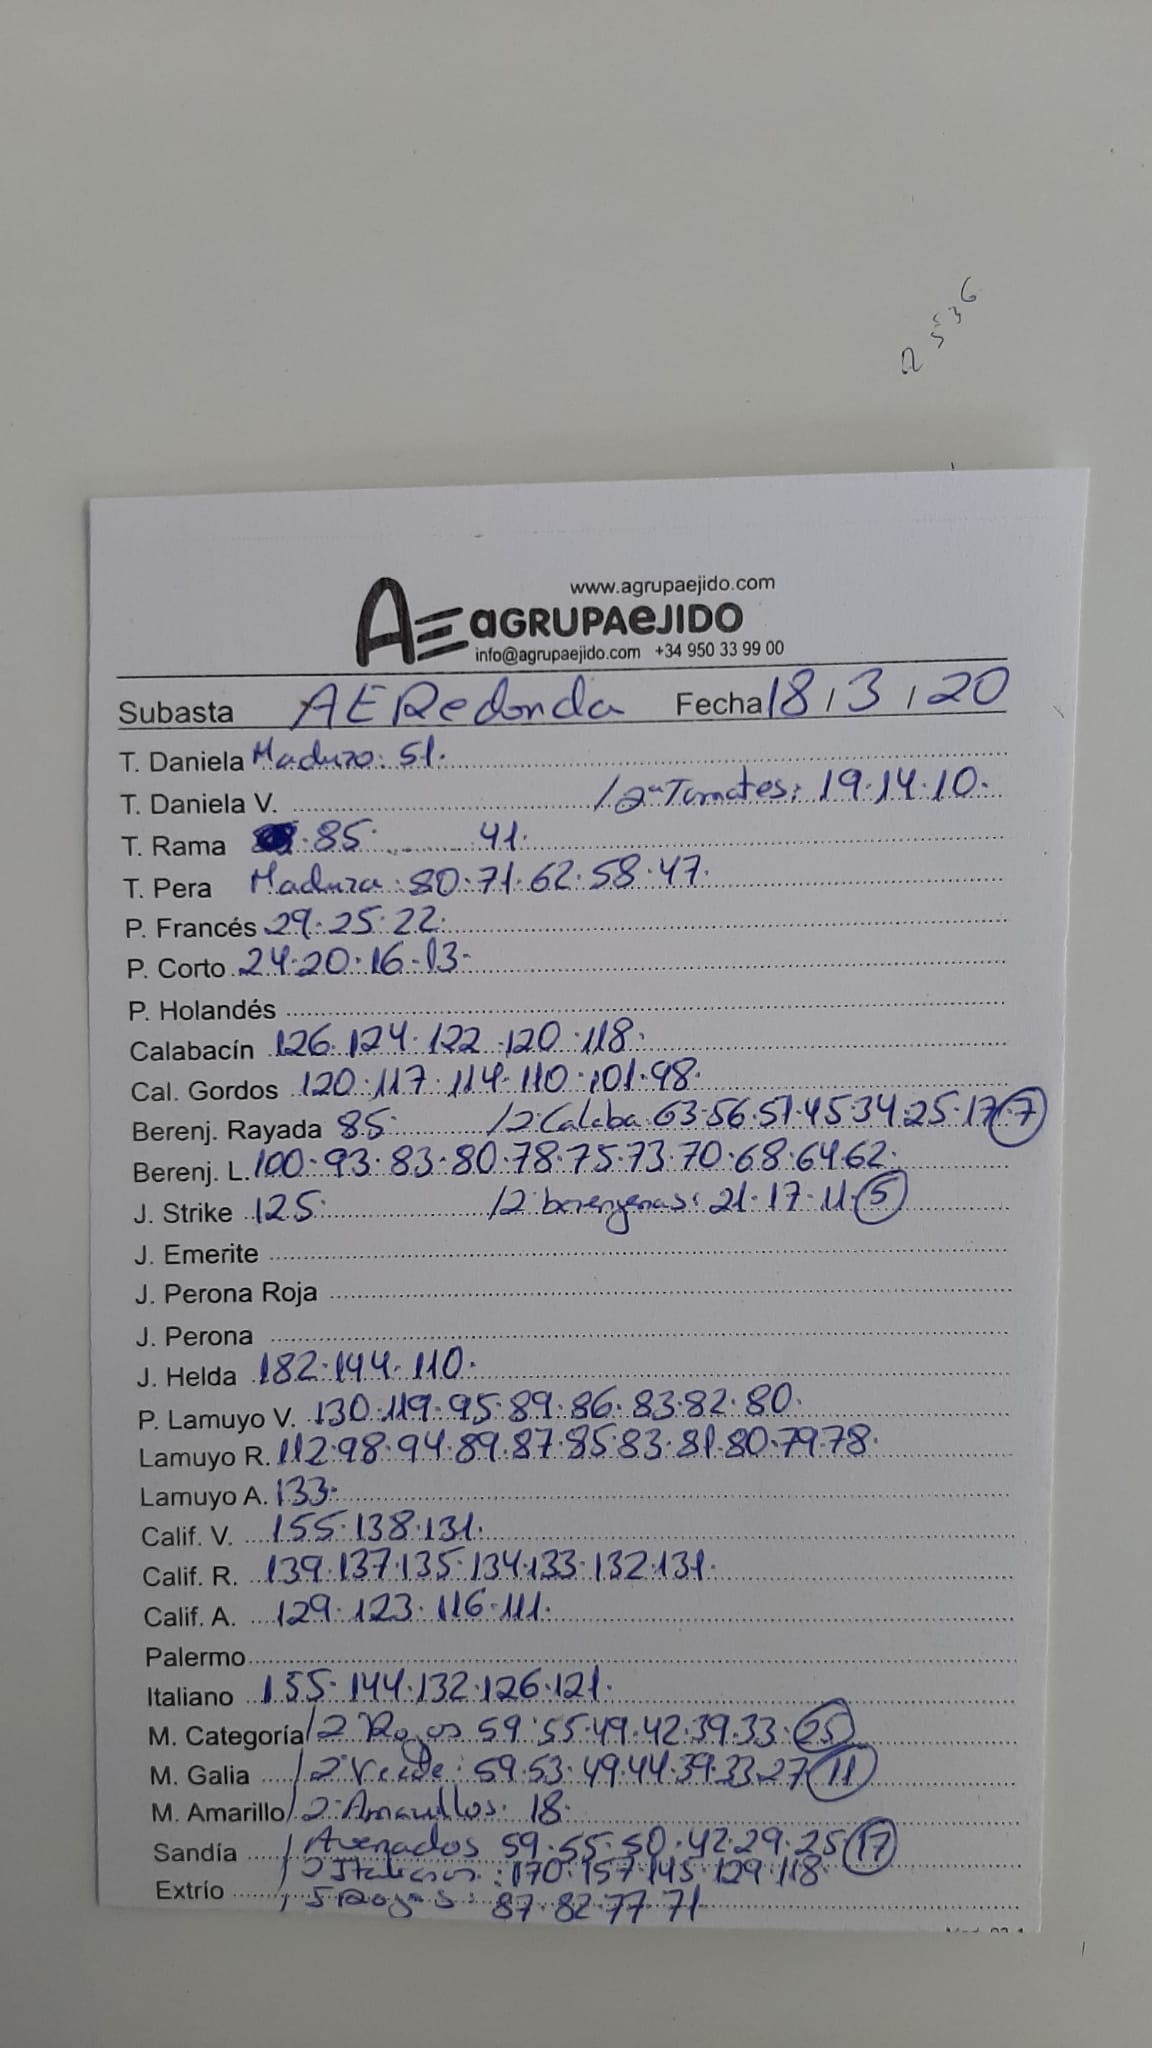 2536
www.agrupaejido.com
AE aGRUPAeJIDO
info@agrupaejido.com +34 950 33 99 00
Subasta AERedonda Fecha 18/3/20
T. Daniela Maduro: 51.
T. Daniela V. /2ª Tomates: 19.14.10.
T. Rama .85. 41.
T. Pera Madura: 80.71.62.58.47.
P. Francés 29.25.22.
P. Corto 24.20.16.13.
P. Holandés
Calabacín 126.124.122.120.118.
Cal. Gordos 120.117.114.110.101.98.
Berenj. Rayada 85. /2ª Calaba. 63.56.51.45.34.25.17.7
Berenj. L. 100.93.83.80.78.75.73.70.68.64.62.
J. Strike 125. /2ª berenjenas: 21.17.11.5
J. Emerite
J. Perona Roja
J. Perona
J. Helda 182.144.110.
P. Lamuyo V. 130.119.95.89.86.83.82.80.
Lamuyo R. 112.98.94.89.87.85.83.81.80.79.78.
Lamuyo A. 133.
Calif. V. 155.138.131.
Calif. R. 139.137.135.134.133.132.131.
Calif. A. 129.123.116.111.
Palermo
Italiano 155.144.132.126.121.
M. Categoría /2ª Rojos 59.55.49.42.39.33.25
M. Galia /2ª Verde: 59.53.49.44.39.33.27.11
M. Amarillo /2ª Amarillos. 18.
Sandía / Asenados 59.55.50.42.29.25.17
/2 Italianos: 170.157.145.129.118.
Extrío / 5 Rojos: 87.82.77.71